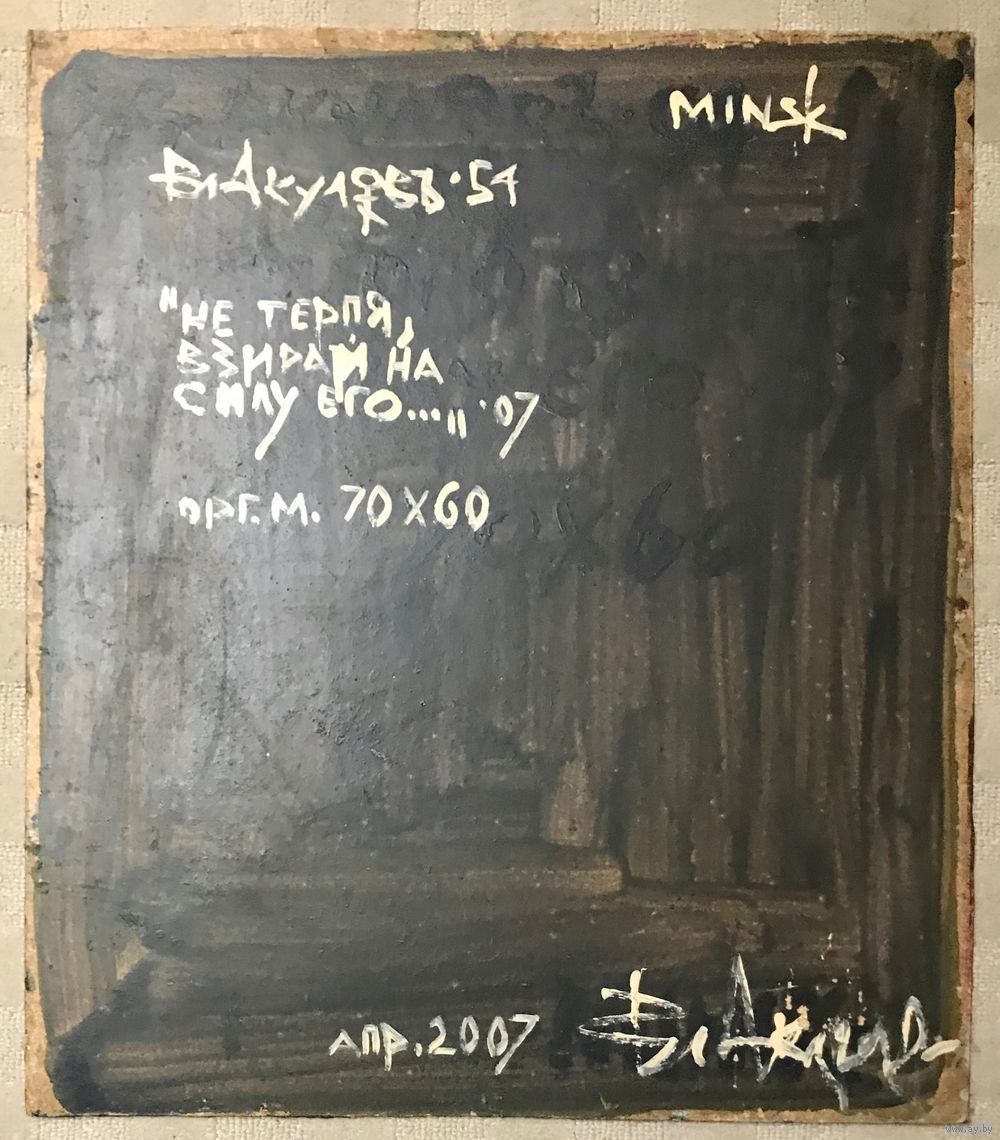 MINSK
ВлАкуловъ·54
"НЕ ТЕРПЯ,
ВЗИРАЙ НА
СИЛУ ЕГО..." '07
орг.м. 70X60
апр.2007
www.ay.by